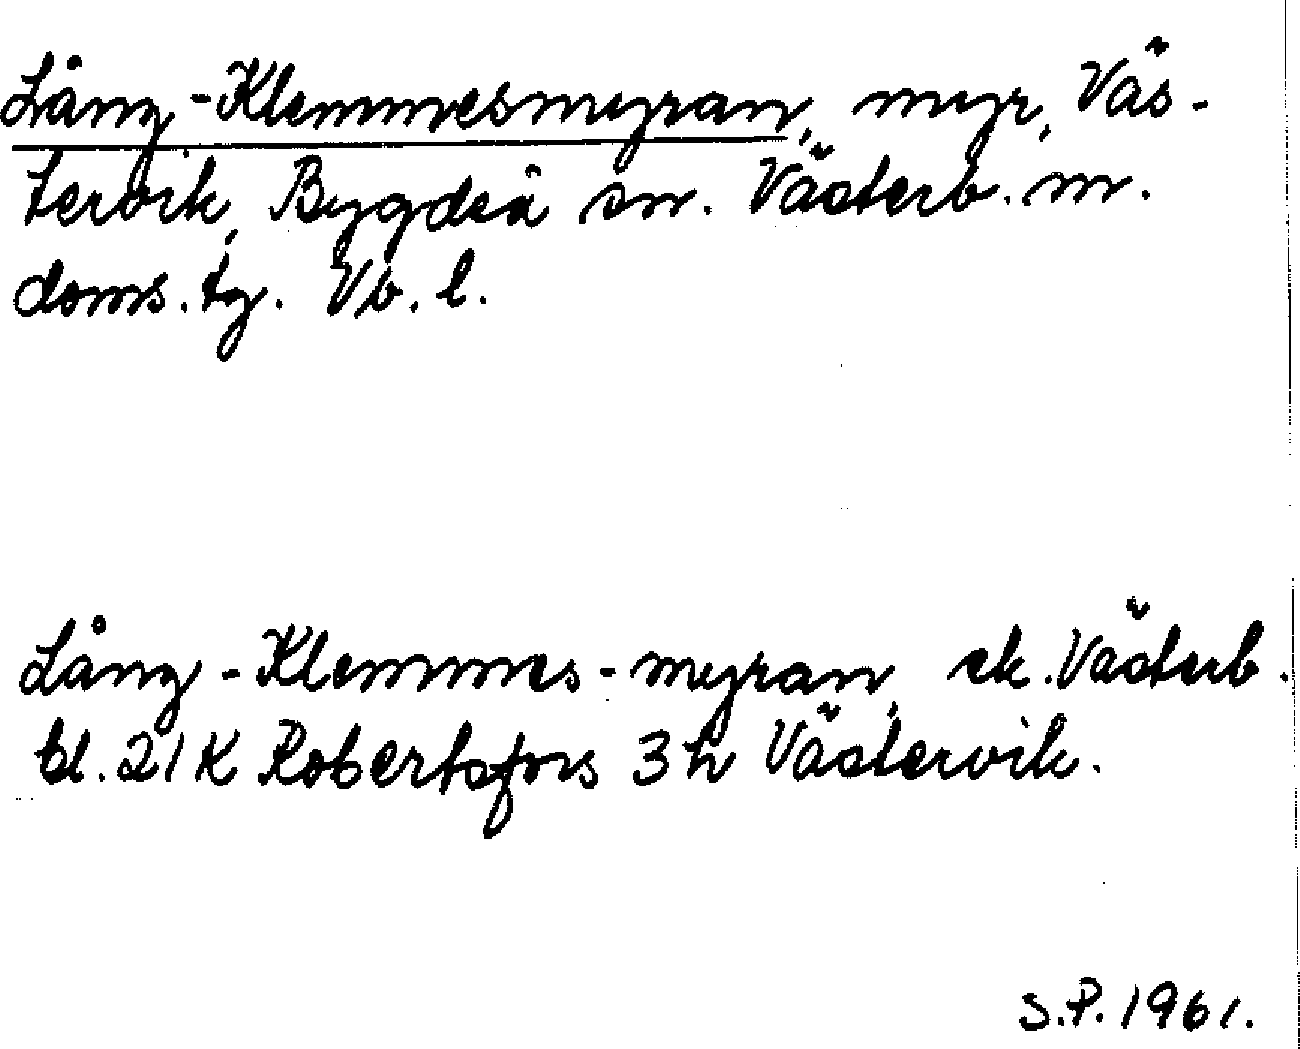 Lång-Klemmesmyran, myr, Väs-
tervik, Bygdeå sn. Västerb. m.
doms. tg. Vb. l.
Lång-Klemmes-myran, ek. Västerb.
bl. 21K Robertsfors 3h Västervik.
S.P. 1961.